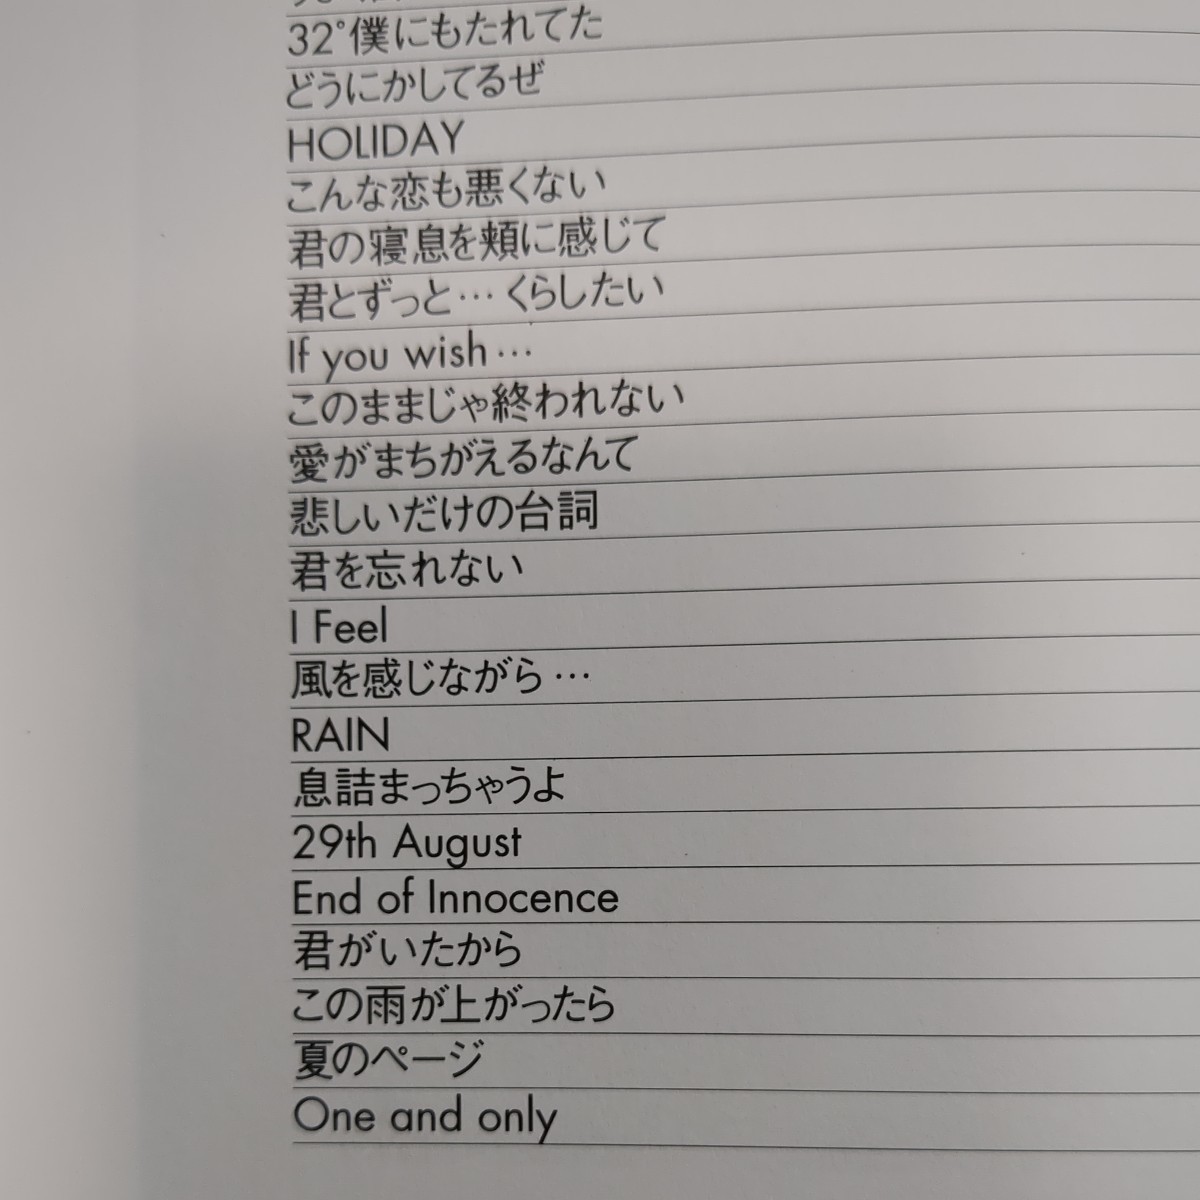 32°僕にもたれてた
どうにかしてるぜ
HOLIDAY
こんな恋も悪くない
君の寝息を頬に感じて
君とずっと…くらしたい
If you wish…
このままじゃ終われない
愛がまちがえるなんて
悲しいだけの台詞
君を忘れない
I Feel
風を感じながら…
RAIN
息詰まっちゃうよ
29th August
End of Innocence
君がいたから
この雨が上がったら
夏のページ
One and only